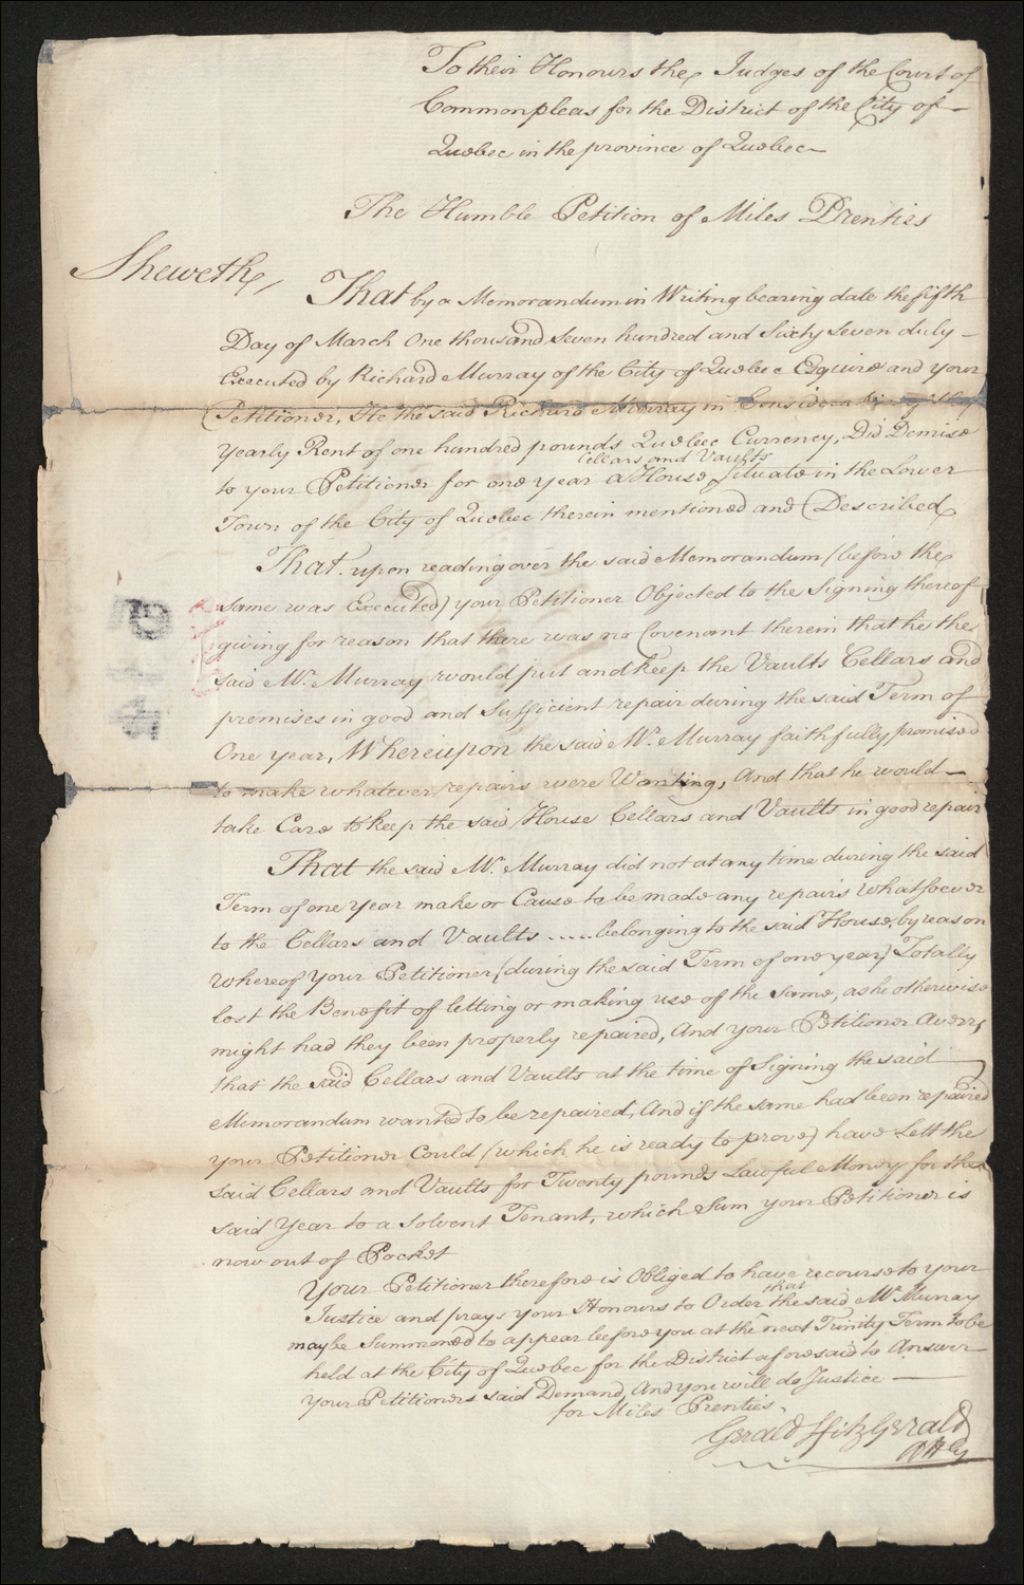 To their Honours the Judges of the Court of
Commonpleas for the District of the City of
Quebec in the province of Quebec
The Humble Petition of Miles Prenties
Sheweth,
That by a Memorandum in Writing bearing date the fifth
Day of March One thousand Seven hundred and Sixty Seven duly
Executed by Richard Murray of the City of Quebec Esquire and your
Petitioner, He the said Richard Murray in Consideration of the
Yearly Rent of one hundred pounds Quebec Currency, Did Demise
Cellars and Vaults
to your Petitioner for one year a House Situate in the Lower
Town of the City of Quebec therein mentioned and Described
That upon reading over the said Memorandum (before the
same was Executed) your Petitioner Objected to the Signing thereof
giving for reason that there was no Covenant therein that he the
said Mr. Murray would put and keep the Vaults Cellars and
premises in good and Sufficient repair during the said Term of
One year, Whereupon the said Mr. Murray faithfully promised
to make whatever repairs were Wanting, And that he would
take Care to keep the said House Cellars and Vaults in good repair
That the said Mr. Murray did not at any time during the said
Term of one Year make or Cause to be made any repairs Whatsoever
to the Cellars and Vaults ..... belonging to the said House, by reason
Whereof Your Petitioner (during the said Term of one year) Totally
lost the Benefit of letting or making use of the Same, as he otherwise
might had they been properly repaired, And your Petitioner Averrs
that the said Cellars and Vaults at the time of Signing the said
Memorandum wanted to be repaired, And if the same had been repaired
your Petitioner Could (which he is ready to prove) have Lett the
said Cellars and Vaults for Twenty pounds Lawful Money for the
said Year to a Solvent Tenant, which Sum your Petitioner is
now out of Pocket
Your Petitioner therefore is Obliged to have recourse to your
that
Justice and prays your Honours to Order the said Mr. Murray
may be Summoned to appear before you at the next Trinity Term to be
held at the City of Quebec for the District aforesaid to Answer
Your Petitioners said Demand, And you will do Justice
for Miles Prenties.
Gerald FitzGerald
Atty